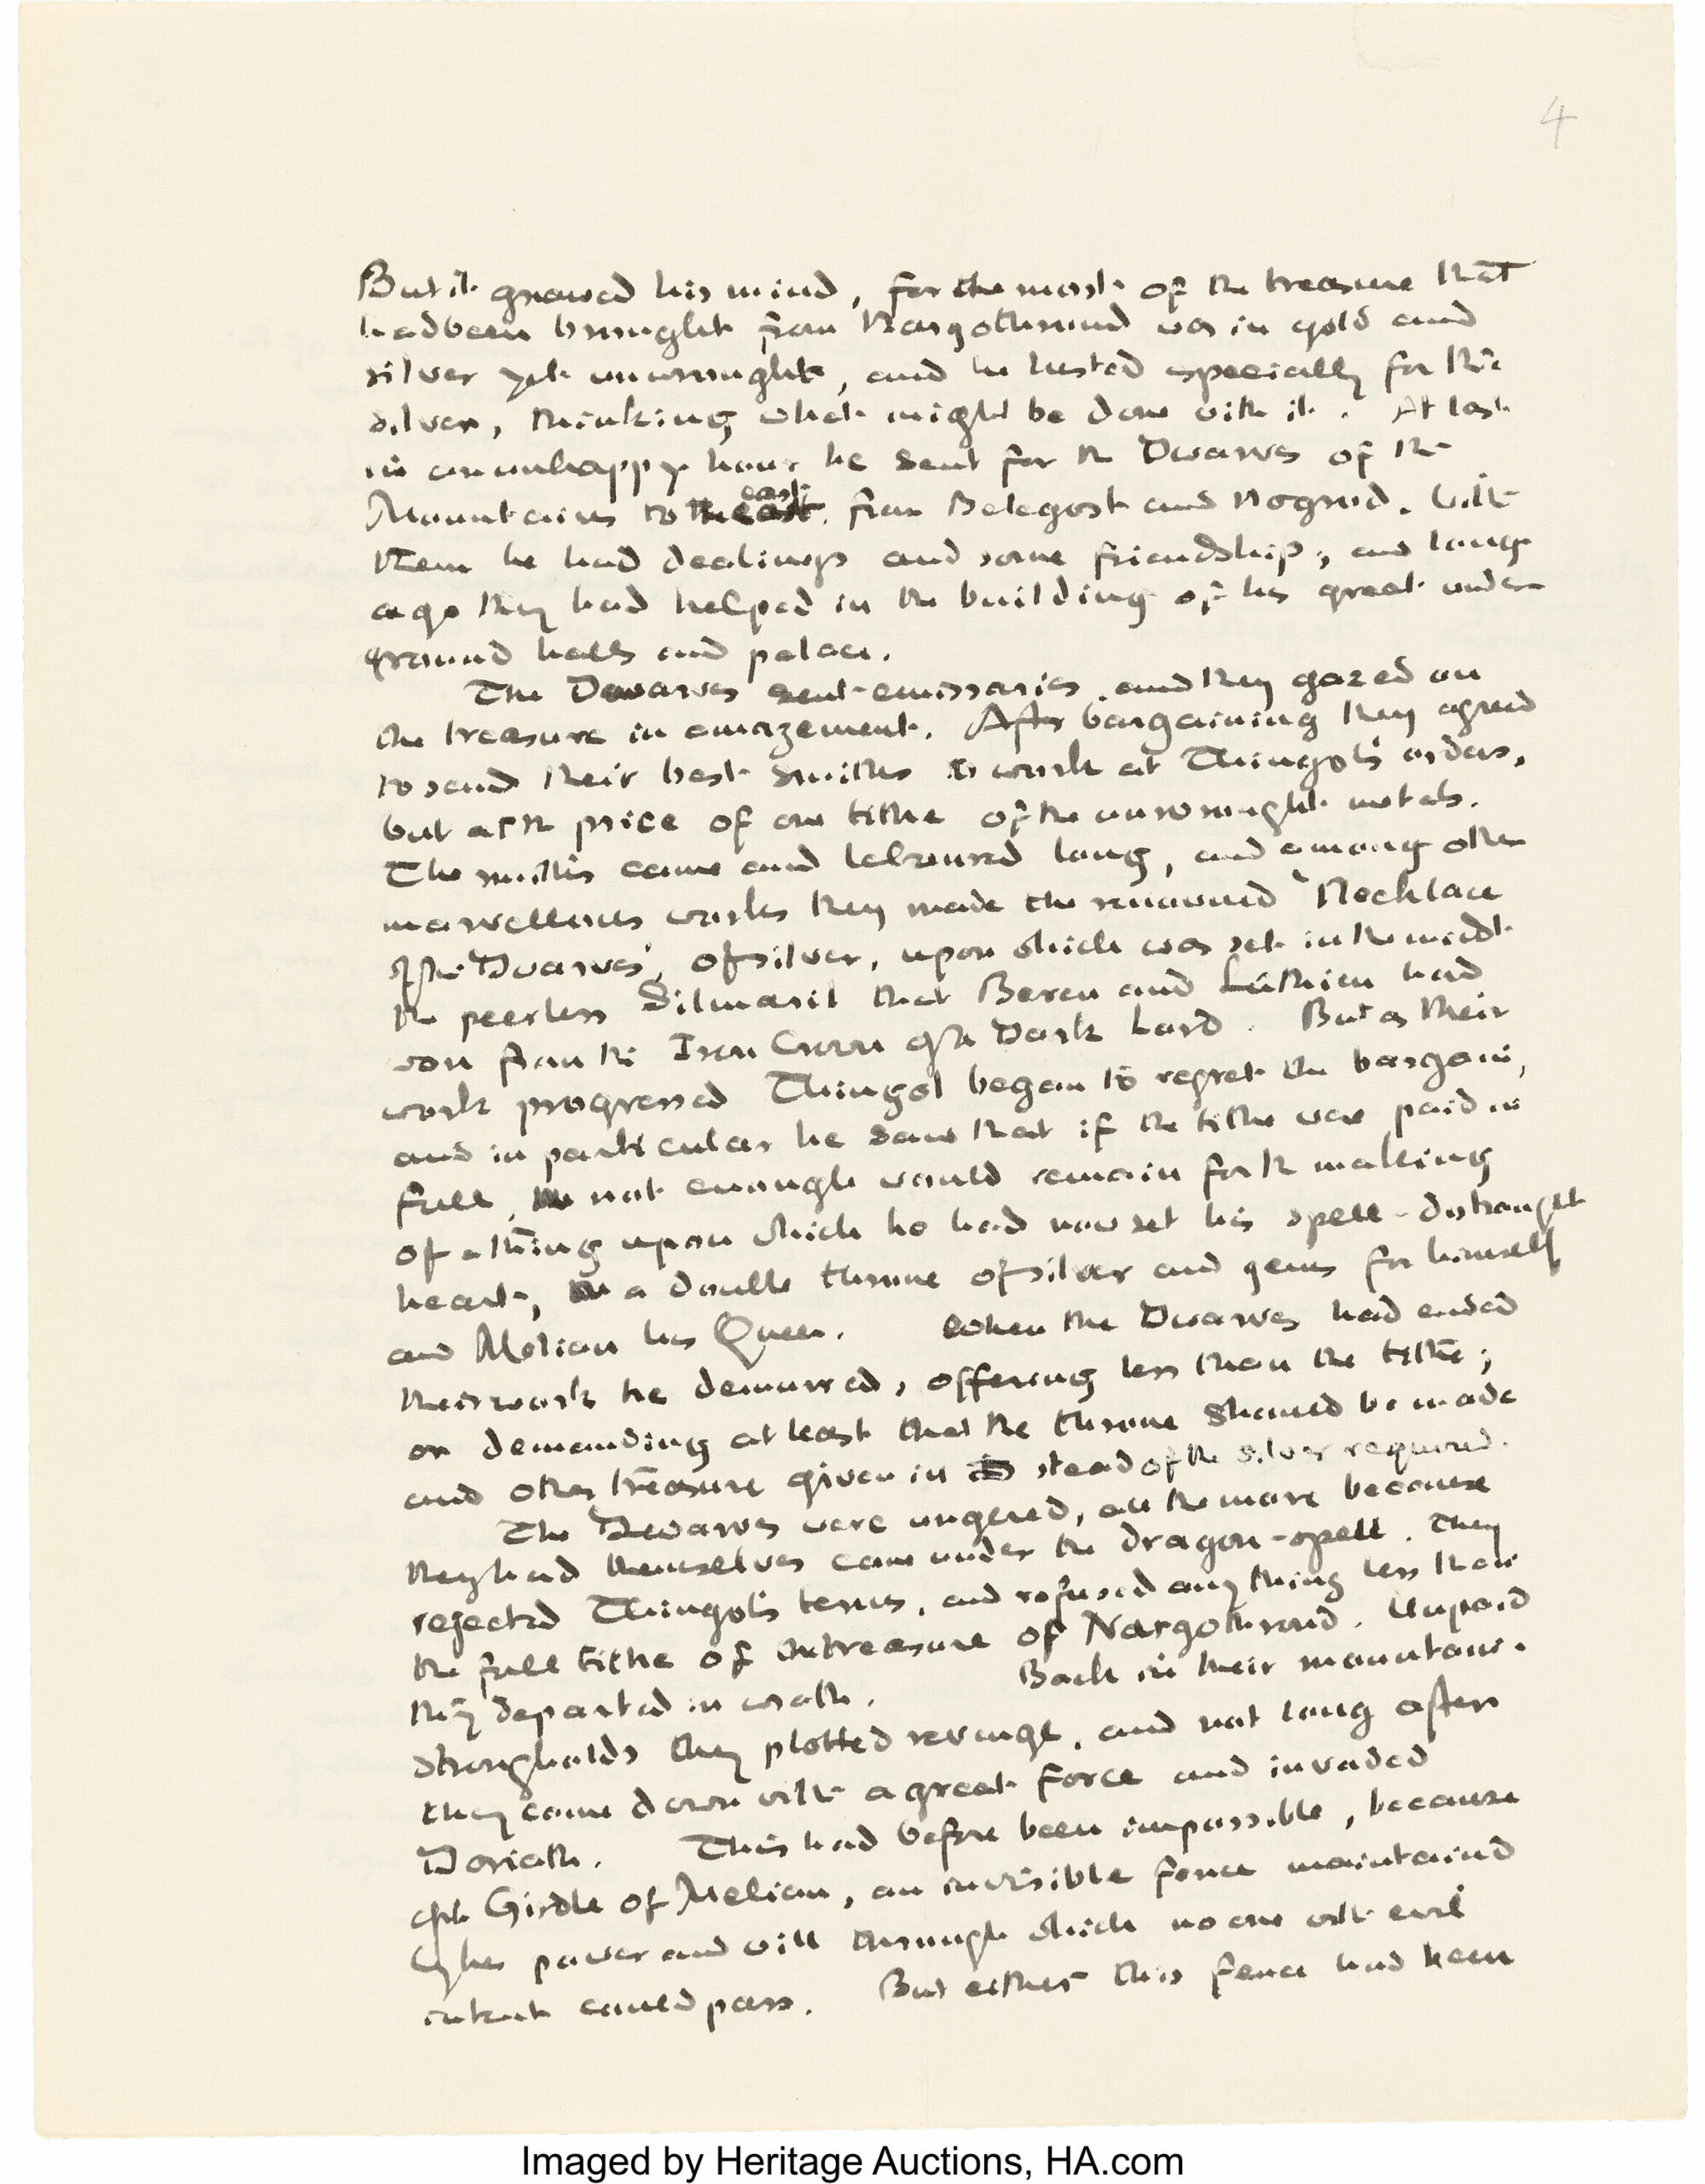 4
But it gnawed his mind, for the most of the treasure that
had been brought from Nargothrond was in gold and
silver yet unwrought, and he lusted specially for the
silver, thinking what might be done with it. At last
in an unhappy hour he sent for the Dwarves of the
Mountains to the east
east, from Belegost and Nogrod. With
them he had dealings and some friendship; and long
ago they had helped in the building of his great under
ground halls and palace.
The Dwarves sent emissaries, and they gazed on
the treasure in amazement. After bargaining they agreed
to send their best smiths to work at Thingol's orders,
but at the price of one tithe of the unwrought metals.
The smiths came and laboured long, and among other
marvellous works they made the renowned 'Necklace
of the Dwarves', of silver, upon which was set in the midst
the peerless Silmaril that Beren and Lúthien had
won from the Iron Crown of the Dark Lord. But as their
work progressed Thingol began to regret the bargain,
and in particular he saw that if the tithe were paid in
full, not enough would remain for the making
of a thing upon which he had now set his spell-distraught
heart, a double throne of silver and gems for himself
and Melian his Queen. When the Dwarves had ended
their work he demurred, offering less than the tithe;
or demanding at least that the throne should be made
and other treasure given in stead of the silver required.
The Dwarves were angered, all the more because
they had themselves come under the dragon-spell. They
rejected Thingol's terms, and refused anything less than
the full tithe of the treasure of Nargothrond. Unpaid
they departed in wrath. Back in their mountain-
strongholds they plotted revenge, and not long after
they came down with a great force and invaded
Doriath. This had before been impossible, because
of the Girdle of Melian, an invisible fence maintained
by her power and will through which no one with evil
intent could pass. But either this fence had been
Imaged by Heritage Auctions, HA.com